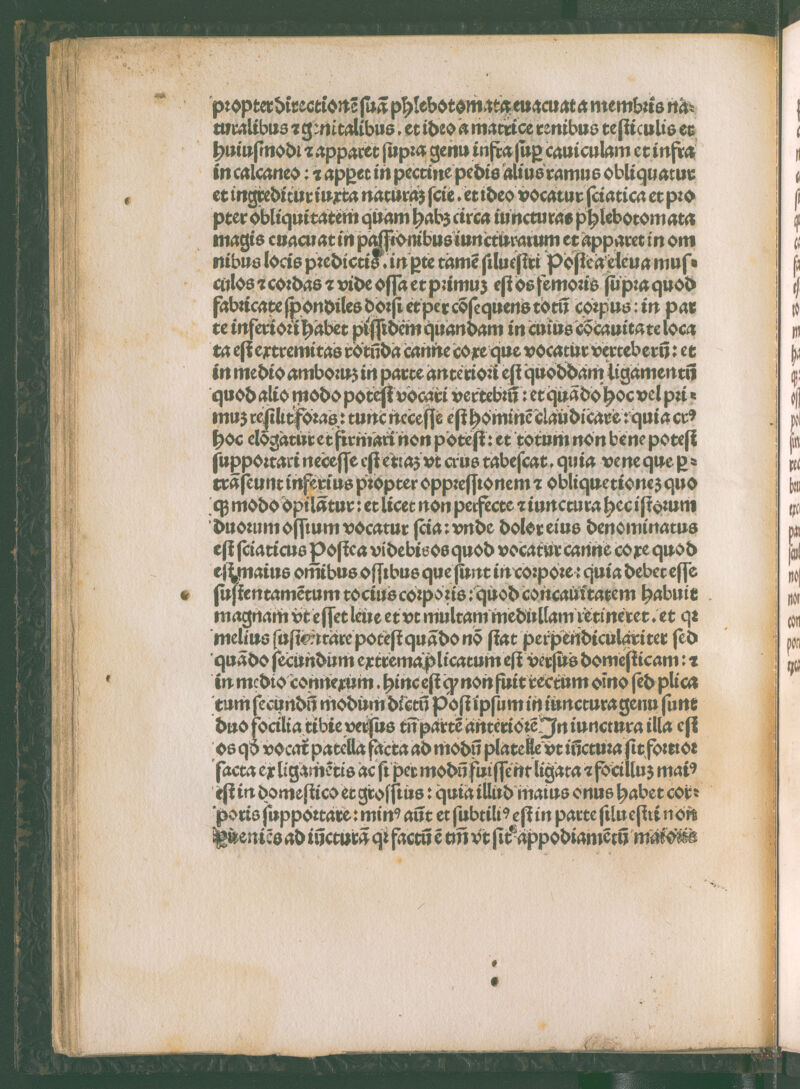 propter directionē suā phlebotomata euacuat a membris na⸗
turalibus ⁊ genitalibus. et ideo a matrice renibus testiculis et
huiusmodi ⁊ apparet supra genu infra sup̱ cauiculam et infra
in calcaneo : ⁊ apꝑet in pectine pedis alius ramus obliquatur
et ingreditur iuxta naturaꝫ scie. et ideo vocatur sciatica et pro
pter obliquitatem quam habꝫ circa iuncturas phlebotomata
magis euacuat in passionibus iuncturarum et apparet in om
nibus locis predictis. in ꝑte tamē siluestri Postea eleua mus⸗
culos ⁊ cordas ⁊ vide ossa et primuꝫ est os femoris supra quod
fabricate spondiles dorsi et per cōsequens totū corpus : in par
te inferiori habet pissidem quandam in cuius cōcauitate loca
ta est extremitas rotūda canne coxe que vocatur verteberū : et
in medio amboruꝫ in parte anteriori est quoddam ligamentū
quod alio modo potest vocari vertebrū : et quādo hoc vel pri⸗
muꝫ resilit foras : tunc necesse est hominē claudicare : quia crꝰ
hoc elōgatur et firmari non potest : et totum non bene potest
supportari necesse est etiaꝫ vt crus tabescat. quia vene que ꝑ⸗
trāseunt inferius propter oppressionem ⁊ obliquetioneꝫ quo
qꝫ modo opilātur : et licet non perfecte ⁊ iunctura hec istorum
duorum ossium vocatur scia : vnde dolor eius denominatus
est sciaticus Postea videbis os quod vocatur canne coxe quod
est maius om̄ibus ossibus que sunt in corpore : quia debet esse
sustentamētum tocius corporis : quod concauitatem habuit
magnam vt esset leue et vt multam medullam retineret. et qꝛ
melius sustentare potest quādo nō stat perpendiculariter sed
quādo secundum extrema plicatum est versus domesticam : ⁊
in medio connexum. hinc est ꝙ non fuit rectum oīno sed plica
tum secundū modum dictū Post ipsum in iunctura genu sunt
duo focilia tibie versus tn̄ partē anteriorē. In iunctura illa est
os qḋ vocat̄ patella facta ad modū platelle vt iūctura sit fortior
facta ex ligamētis ac si per modū fuissent ligata ⁊ focilluꝫ maiꝰ
est in domestico et grossius : quia illud maius onus habet cor⸗
poris supportare : minꝰ aūt et subtiliꝰ est in parte siluestri non
ꝑueniēs ad iūcturā qꝛ factū ē tm̄ vt sit appodiamētū maioris